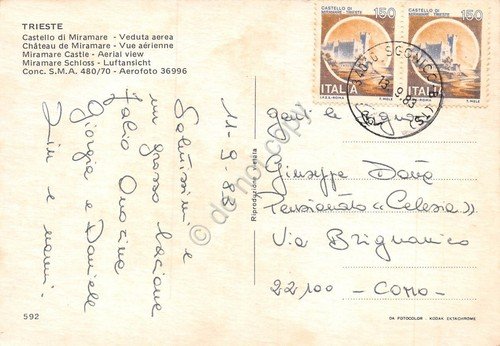 TRIESTE
Castello di Miramare - Veduta aerea
Château de Miramare - Vue aérienne
Miramare Castle - Aerial view
Miramare Schloss - Luftansicht
Conc. S.M.A. 480/70 - Aerofoto 36996
11-9-83
Salutissimi e
un grosso bacione
Giorgia e Daniele
592
Riproduzione vietata
CASTELLO DI
MIRAMARE - TRIESTE
150
ITALIA
I.P.Z.S. - ROMA
T. MELE
CASTELLO DI
MIRAMARE - TRIESTE
150
ITALIA
I.P.Z.S. - ROMA
T. MELE
34010 SGONICO
13.9.83
Giuseppe
Pensionato «Celesia»
Via Brignanico
22100 - COMO -
DA FOTOCOLOR - KODAK EKTACHROME
© delcampe copy